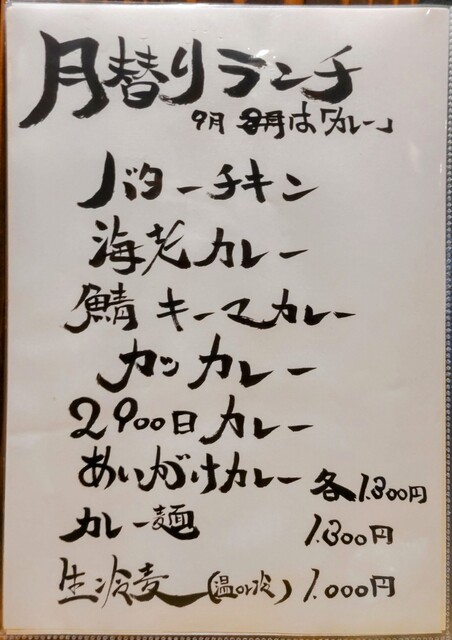 月替りランチ
9月は「カレー」
バターチキン
海老カレー
鯖キーマカレー
カツカレー
2900日カレー
あいがけカレー 各1.300円
カレー麺 1.300円
生冷麦(温or冷) 1.000円